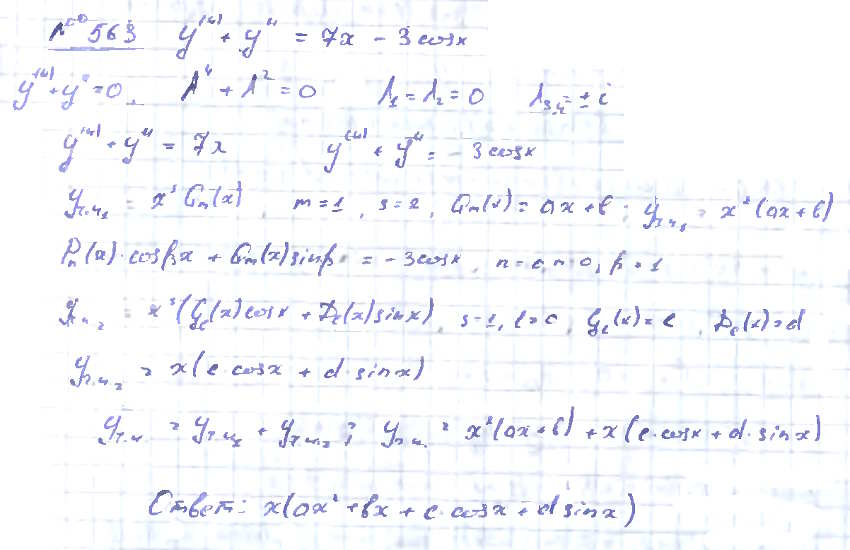 № 563 y⁽⁴⁾ + y'' = 7x - 3cosx
y⁽⁴⁾ + y'' = 0, λ⁴ + λ² = 0 λ₁ = λ₂ = 0 λ₃,₄ = ± i
y⁽⁴⁾ + y'' = 7x y⁽⁴⁾ + y'' = -3cosx
yч.н₁ = xˢ Qm(x), m=1, s=2, Qm(x) = ax+b; yч.н₁ = x²(ax+b)
Pn(x)·cosβx + Qm(x)sinβx = -3cosx, n=0, m=0, β=1
yч.н₂ = xˢ(Cl(x)cosx + Dl(x)sinx), s=1, l=0, Cl(x)=c, Dl(x)=d
yч.н₂ = x(c·cosx + d·sinx)
yч.н. = yч.н₁ + yч.н₂; yч.н. = x²(ax+b) + x(c·cosx + d·sinx)
Ответ: x(ax²+bx + c·cosx + d sinx)